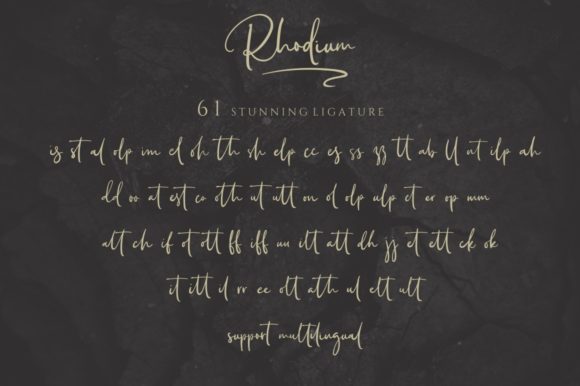 Rhodium
61 STUNNING LIGATURE
is st al olp im el oh th sh elp cc es ss zz tt ab ll nt ilp ah
dd oo at est co oth ut utt on ol olp ulp ot er op mm
alt ch if ot ott ff iff uu ilt att dh jj et ett ck ok
it itt il rr ee olt ath ul elt ult
support multilingual